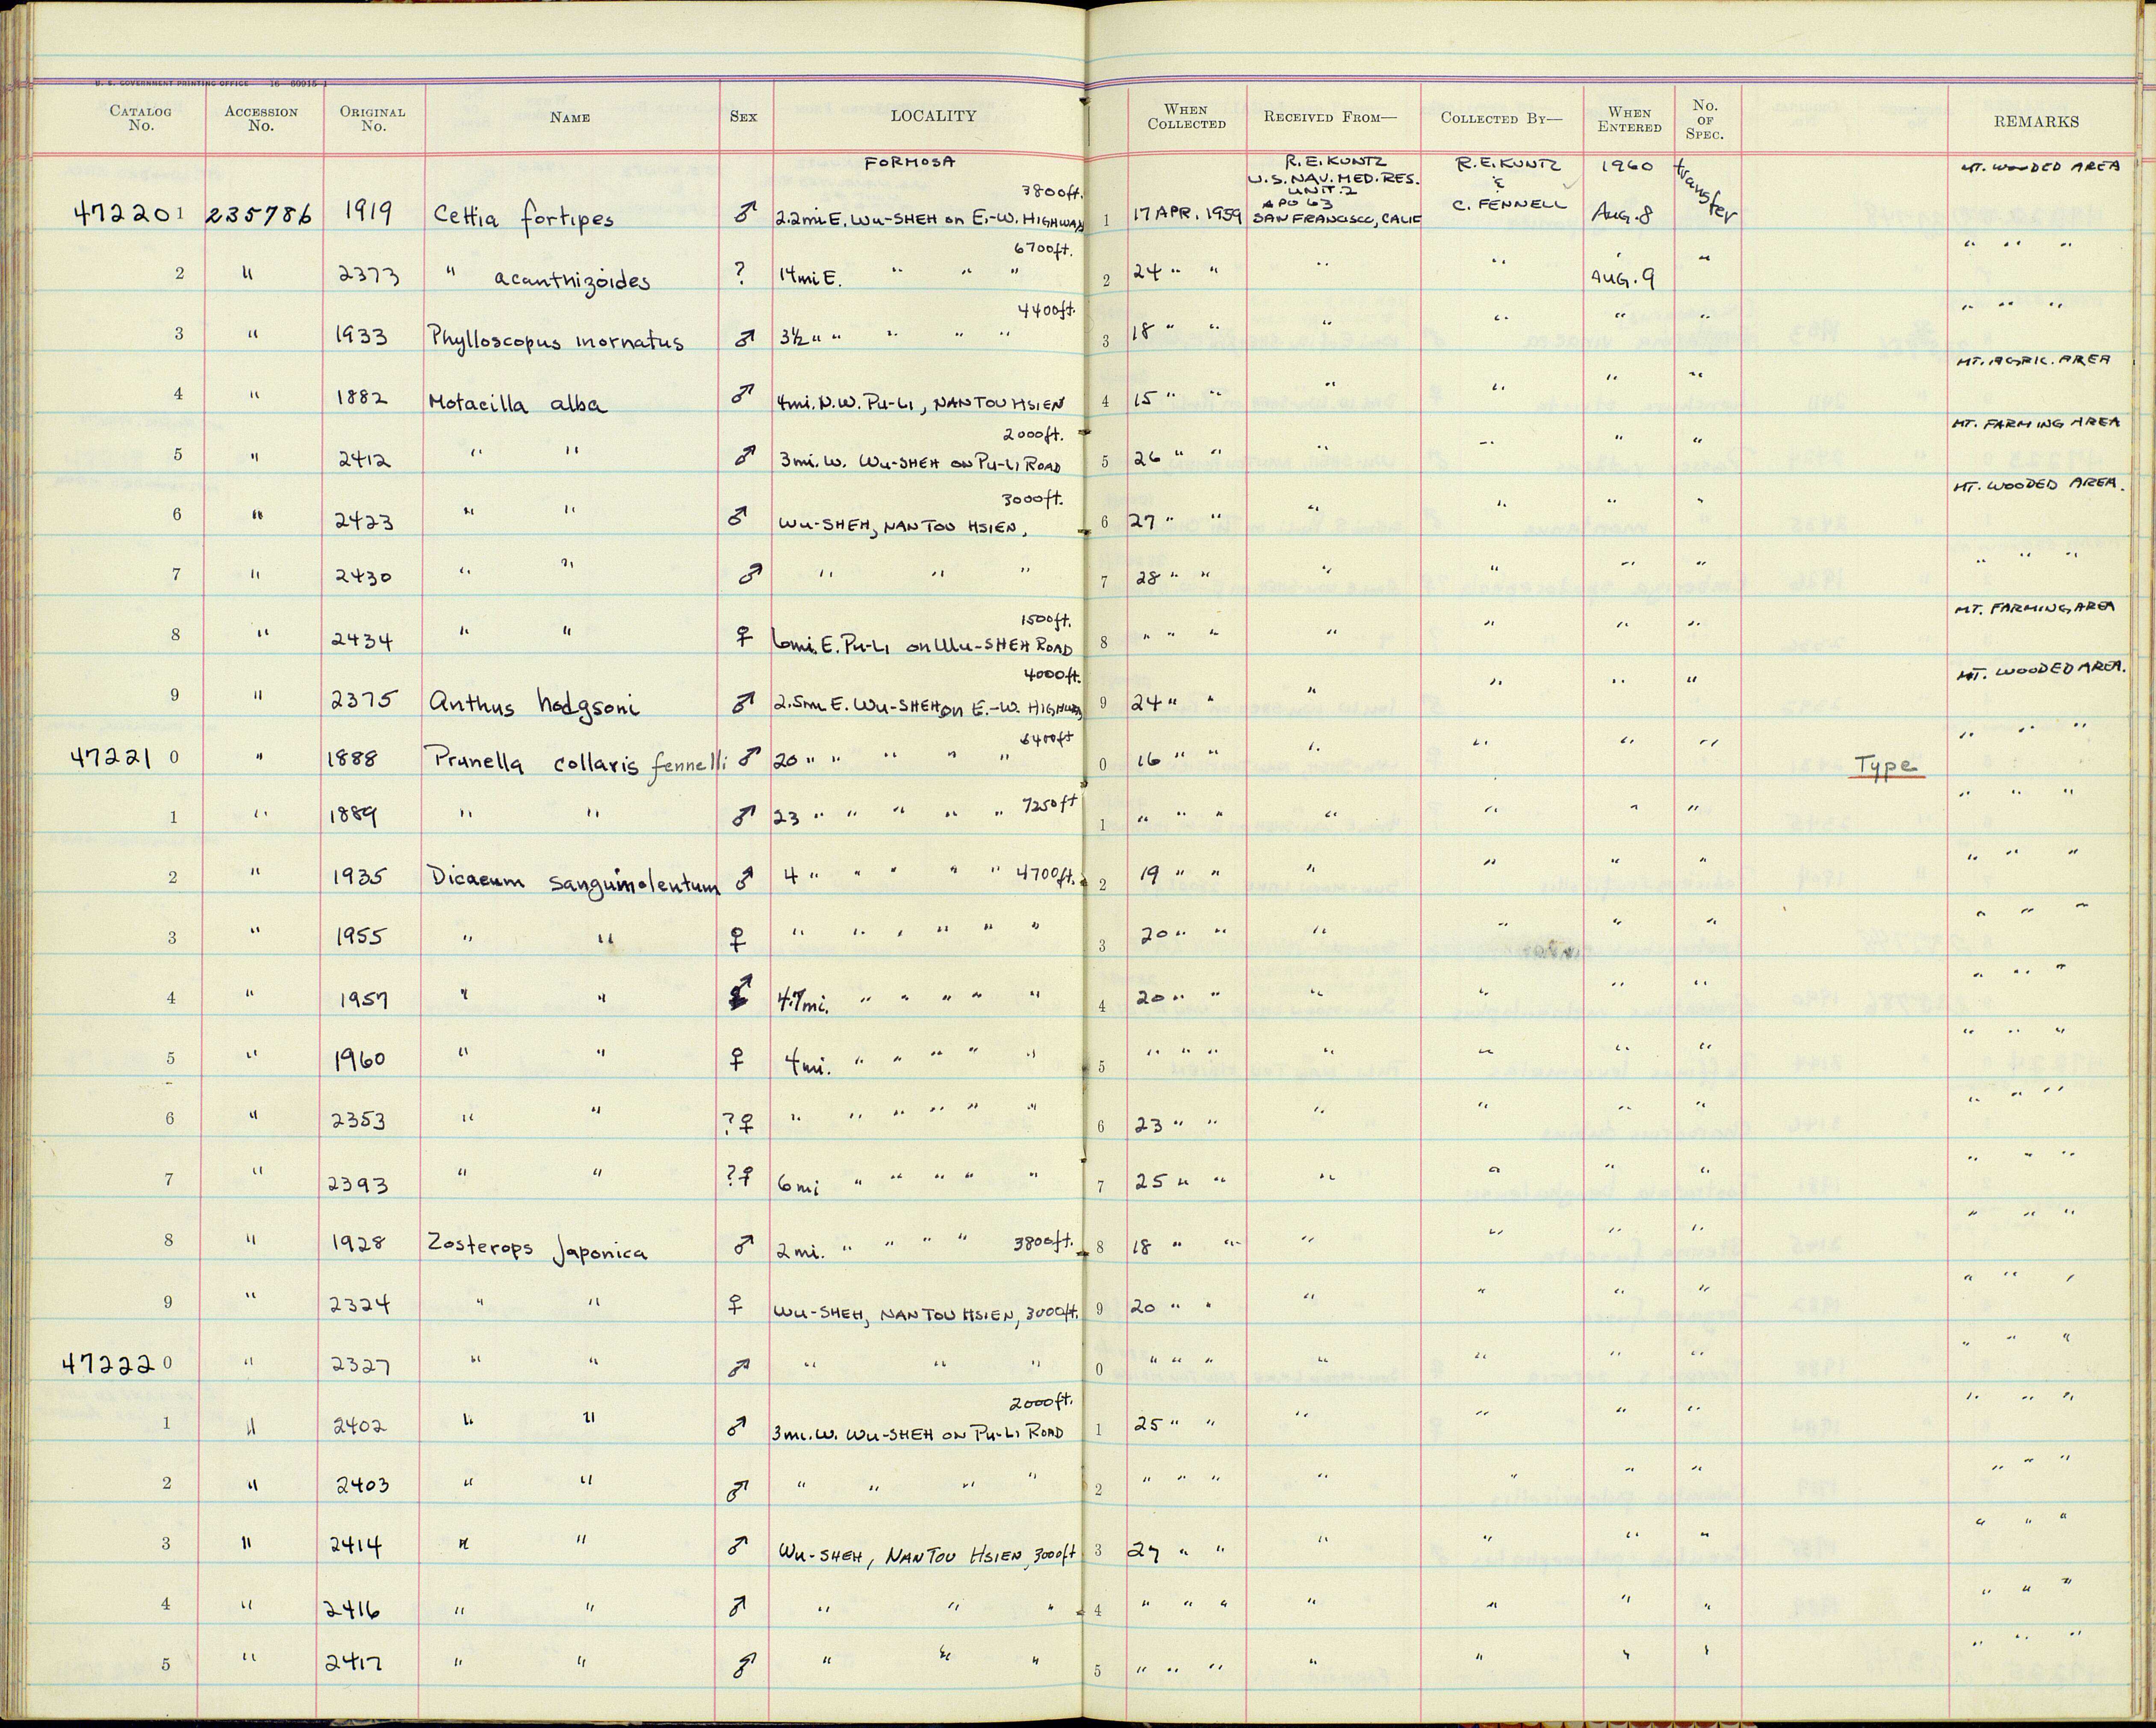 U. S. GOVERNMENT PRINTING OFFICE 16—60915-1
CATALOG No. ACCESSION No. ORIGINAL No. NAME SEX LOCALITY WHEN COLLECTED RECEIVED FROM— COLLECTED BY— WHEN ENTERED No. OF SPEC. REMARKS
FORMOSA R.E. KUNTZ R.E. KUNTZ 1960 transfer MT. WOODED AREA
3800ft. U.S. NAV. MED. RES. &
UNIT. 2
APO 63 C. FENNELL
472201 235786 1919 Cettia fortipes ♂ 2.2mi E. WU-SHEH on E.-W. HIGHWAY 1 17 APR. 1959 SAN FRANCISCO, CALIF AUG. 8
6700ft. " " "
2 " 2373 " acanthizoides ? 14mi E. " " " 2 24 " " " " AUG. 9 "
4400ft. " " "
3 " 1933 Phylloscopus inornatus ♂ 3½ " " " " " 3 18 " " " " " "
MT. AGRIC. AREA
4 " 1882 Motacilla alba ♂ 4mi. N.W. PU-LI, NANTOU HSIEN 4 15 " " " " " "
2000ft. MT. FARMING AREA
5 " 2412 " " ♂ 3mi. W. WU-SHEH ON PU-LI ROAD 5 26 " " " " " "
3000ft. MT. WOODED AREA.
6 " 2423 " " ♂ WU-SHEH, NANTOU HSIEN, 6 27 " " " " " "
7 " 2430 " " ♂ " " " 7 28 " " " " " " " " "
1500ft. MT. FARMING AREA
8 " 2434 " " ♀ 6mi. E. PU-LI on WU-SHEH ROAD 8 " " " " " " "
4000ft. MT. WOODED AREA.
9 " 2375 Anthus hodgsoni ♂ 2.5mi E. WU-SHEH on E.-W. HIGHWAY 9 24 " " " " " "
6400ft " " "
472210 " 1888 Prunella collaris fennelli ♂ 20 " " " " " 0 16 " " " " " " Type
1 " 1889 " " ♂ 23 " " " " " 7250ft 1 " " " " " " " " " "
2 " 1935 Dicaeum sanguinolentum ♂ 4 " " " " 4700ft. 2 19 " " " " " " " " "
3 " 1955 " " ♀ " " " " " " 3 20 " " " " " " " " "
4 " 1957 " " ♂ 4.7mi. " " " " " 4 20 " " " " " " " " "
5 " 1960 " " ♀ 4mi. " " " " " 5 " " " " " " " " " "
6 " 2353 " " ?♀ " " " " " " 6 23 " " " " " " " " "
7 " 2393 " " ?♀ 6mi " " " " " 7 25 " " " " " " " " "
8 " 1928 Zosterops japonica ♂ 2mi. " " " " 3800ft. 8 18 " " " " " " " " "
9 " 2324 " " ♀ WU-SHEH, NANTOU HSIEN, 3000ft. 9 20 " " " " " " " " "
472220 " 2327 " " ♂ " " " 0 " " " " " " " " " "
2000ft.
1 " 2402 " " ♂ 3mi. W. WU-SHEH ON PU-LI ROAD 1 25 " " " " " " " " "
2 " 2403 " " ♂ " " " " 2 " " " " " " " " " "
3 " 2414 " " ♂ WU-SHEH, NANTOU HSIEN, 3000ft 3 27 " " " " " " " " "
4 " 2416 " " ♂ " " " 4 " " " " " " " " " "
5 " 2417 " " ♂ " " " 5 " " " " " " " " " "